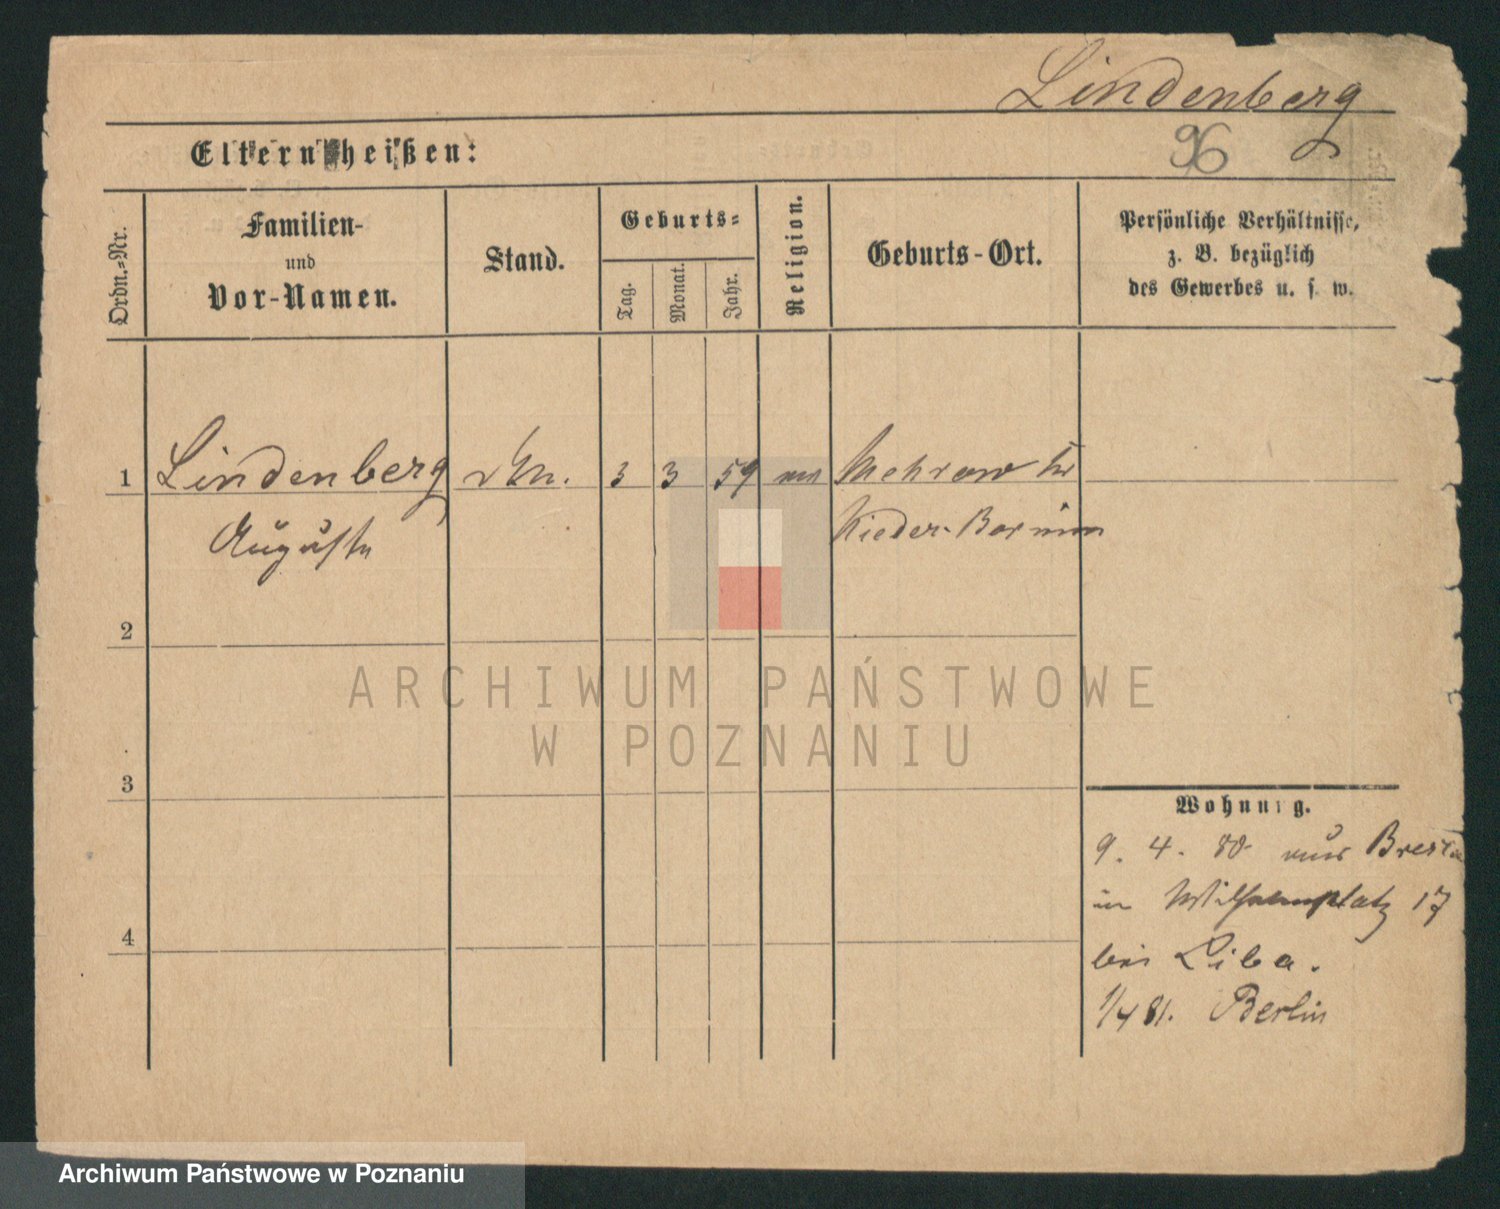 Lindenberg
96
Eltern heißen:
Ordn.-Nr.
Familien-
und
Vor-Namen.
Stand.
Geburts-
Tag.
Monat.
Jahr.
Religion.
Geburts-Ort.
Persönliche Verhältnisse,
z. B. bezüglich
des Gewerbes u. s. w.
1 Lindenberg 3 3 59 Mehrow
Auguste Nieder-Barnim
2
ARCHIWUM PAŃSTWOWE
W POZNANIU
3
Wohnung.
9. 4. 80 aus
in Wilhelmplatz 17
bei Liba.
1/4 81. Berlin
4
Archiwum Państwowe w Poznaniu